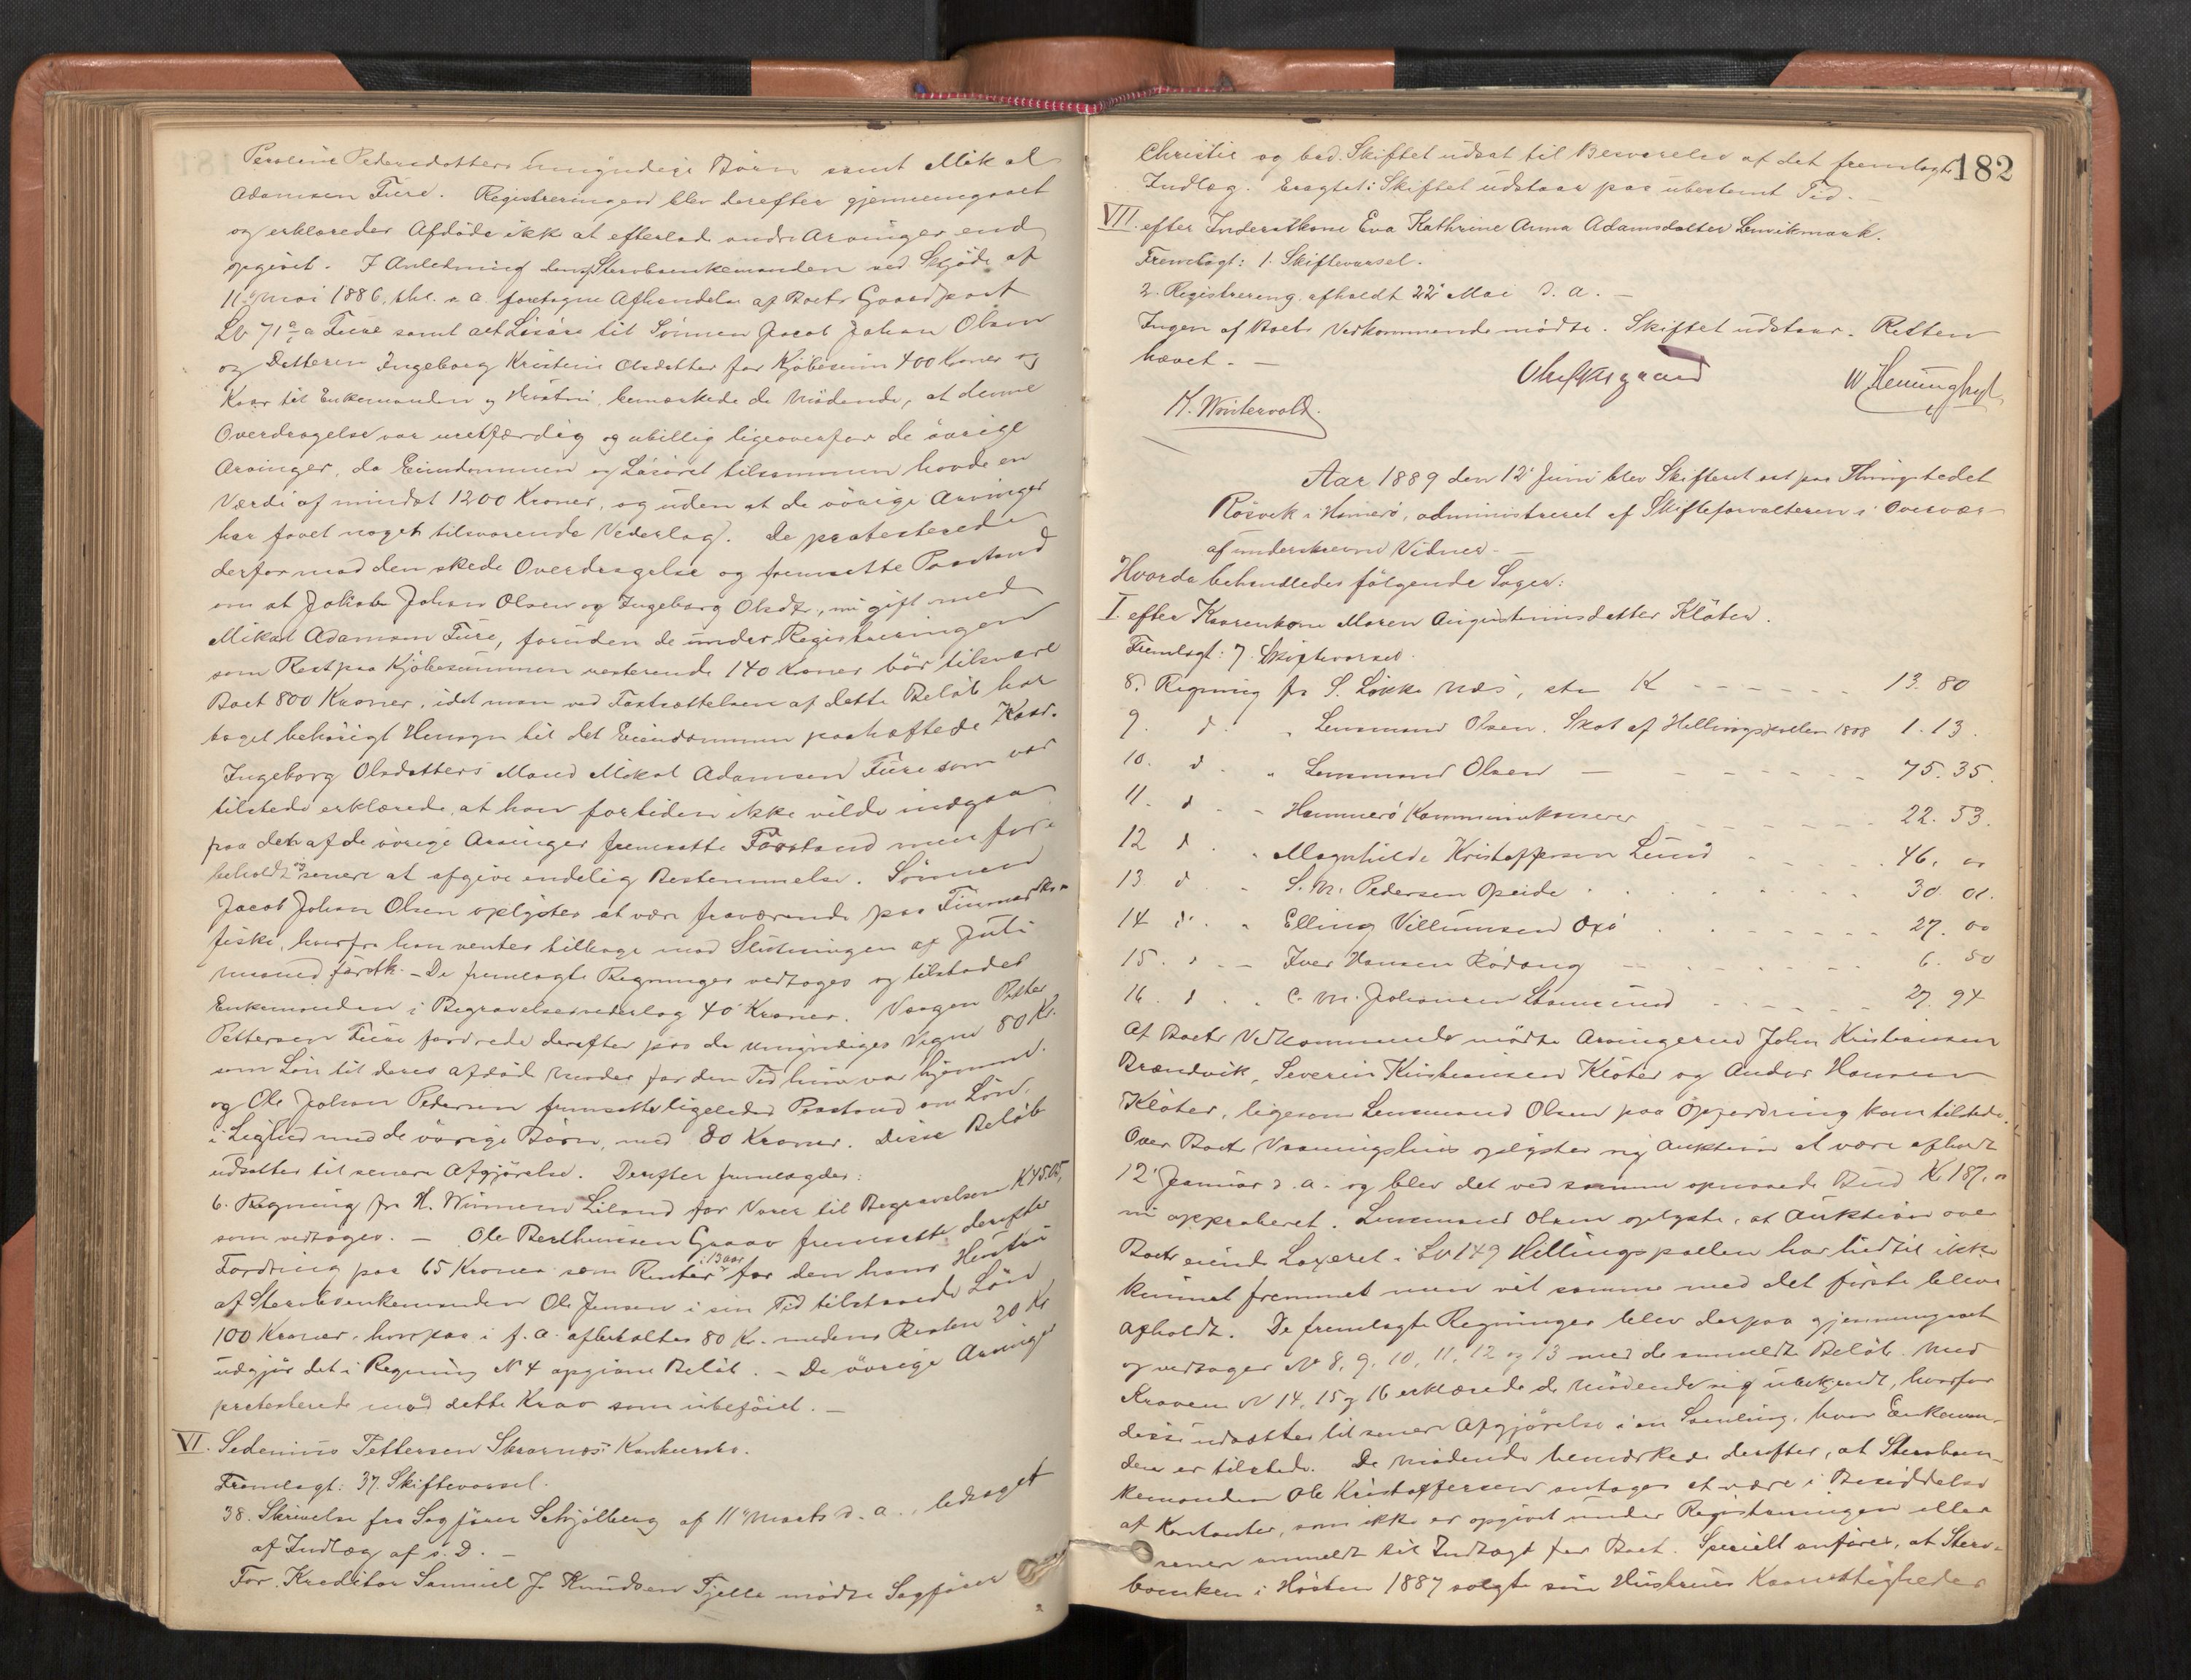 Peroline Pedersdatters umyndige Børn samt Mikal
Adamsen Fure. Registreringen blev derefter gjennemgaaet
og erklæredes Afdøde ikke at efterlade andre Arvinger end
opgivet. I Anledning den af Stervboenkemanden ved Skjøde af
11 Mai 1886, thl. s. a. foretagne Afhændelse af Boets Gaardpart
Lb 71 a Fure samt alt Løsøre til Sønnen Jacob Johan Olsen
og Datteren Ingeborg Kristine Olsdatter for Kjøbesum 400 Kroner og
Kaar til Enkemanden og Hustru, bemærkede de Mødende, at denne
Overdragelse var uretfærdig og ubillig ligeoverfor de øvrige
Arvinger, da Eiendommen og Løsøret tilsammen havde en
Værdi af mindst 1200 Kroner, og uden at de øvrige Arvinger
har faaet noget tilsvarende Vederlag. De protesterede
derfor mod den skede Overdragelse og fremsatte Paastand
om at Jakob Johan Olsen og Ingeborg Olsdtr, nu gift med
Mikal Adamsen Fure, foruden de under Registreringen
som Rest paa Kjøbesummen resterende 140 Kroner bør tilsvare
Boet 800 Kroner, idet man ved Fastsættelsen af dette Beløb har
taget behørigt Hensyn til det Eiendommen paahæftede Kaar.
Ingeborg Olsdatters Mand Mikal Adamsen Fure som var
tilstede erklærede, at han for tiden ikke vilde indgaa
paa den af de øvrige Arvinger fremsatte Paastand men for-
beholdt sig senere at afgive endelig Bestemmelse. Sønnen
Jacob Johan Olsen oplystes at være fraværende paa Finmarks-
fiske, hvorfra han ventes tilbage mod Slutningen af Juli
Maaned førstk. - De fremlagte Regninger vedtoges og tilstodes
Enkemanden i Begravelsesvederlag 40 Kroner. Værgen Petter
Pettersen Fure fordrede derefter paa de umyndiges Vegne 80 Kr.
som Løn til deres afdøde Moder for den Tid hun var hjemme.
og Ole Johan Pedersen fremsatte ligeledes Paastand om Løn
i Lighed med de øvrige Børn, med 80 Kroner. Disse Beløb
udsættes til senere Afgjørelse. Derefter fremlagdes:
6. Regning fra H. Liland for Varer til Begravelsen K 45.05,
som vedtoges. - Ole Berthinsen Graav fremsatte derefter
Fordring paa 65 Kroner som Renter i 13 Aar for den hans Hustru
af Stervboenkemanden Ole Jensen i sin Tid tilstaaede Løn
100 Kroner, hvorpaa i f. a. afbetaltes 80 Kr. medens Resten 20 Kr
udgjør det i Regning N 4 opgivne Beløb. - De øvrige Arvinger
protesterede mod dette Krav som ubeføiet. -
VI. Sedenius Pettersen Skarnæs Konkursbo.
Fremlagt: 37. Skiftevarsel.
38. Skrivelse fra Sagfører Schjølberg af 11 Marts d. a., ledsaget
af Indlæg af s. D. -
For Kreditor Samuel J. Knudsen Tjelle mødte Sagfører
182
Christie og bad Skiftet udsat til Besvarelse af det fremlagte
Indlæg. Eragtet: Skiftet udstaar paa ubestemt Tid. -
VII. efter Inderstkone Eva Kathrine Anna Adamsdatter Lenvikmark.
Fremlagt: 1. Skiftevarsel.
2. Registrering afholdt 22 Mai d. a. -
Ingen af Boets Vedkommende mødte. Skiftet udstaar. Retten
hævet. -
M. Wintervold.
Aar 1889 den 12 Juni blev Skifteret sat paa Thingstedet
Røsvik i Hamerø, administreret af Skifteforvalteren i Overvær
af underskrevne Vidner. -
Hvorda behandledes følgende Sager:
I. efter Kaarenkone Maren Augustinusdatter Kløter.
Fremlagt: 7. Skiftevarsel.
8. Regning fra S. Løkke Næs, stor K - - - 13. 80
9. d. " Lensmand Olsen. Skat af Hellingspollen 1888 1. 13.
10. d. " Lensmand Olsen - - - 75. 35.
11. d. - Hammerø Kommunekasserer - - - 22. 53.
12 d. " Magnhilde Kristoffersen Lund - - - 46. 00
13 d. - S. M. Pedersen Opeide - - - 30. 01.
14 d. " Elling Villumsen Oxø - - - 27. 00
15. d. - Iver Hansen Rødang - - - 6. 50
16. d. " C. M. Johansen Stamsund - - - 27. 94
Af Boets Vedkommende mødte Arvingerne John Kristiansen
Brændvik, Severin Kristiansen Kløter og Andor Hansen
Kløter, ligesom Lensmand Olsen paa Opfordring kom tilstede.
Over Boets Vaaningshus oplystes sig Auktion at være afholdt
12 Januar d. a. og blev det ved samme opnaaede Bud K 187. 00
nu approberet. Lensmand Olsen oplyste, at Auktion over
Boets eiende Løsøret i Lb 149 Hellingspollen har hidtil ikke
kunnet fremmet men vil samme med det første blive
afholdt. De fremlagte Regninger blev derpaa gjennemgaaet
og vedtoges N 8, 9, 10, 11, 12 og 13 med de anmeldte Beløb. Med
Kravene N 14, 15 og 16 erklærede de Mødende sig ubekjendt, hvorfor
disse udsættes til senere Afgjørelse i en Samling, hvor Enkeman-
den er tilstede. De Mødende bemærkede derefter, at Stervboen-
kemanden Ole Kristoffersen antages at være i Besiddelse
af Kontanter, som ikke er opgivet under Registreringen eller
senere anmeldt til Indtægt for Boet. Specielt anføres, at Sterv-
boenken i Høsten 1887 solgte sin Hustrues Kaarrettigheder